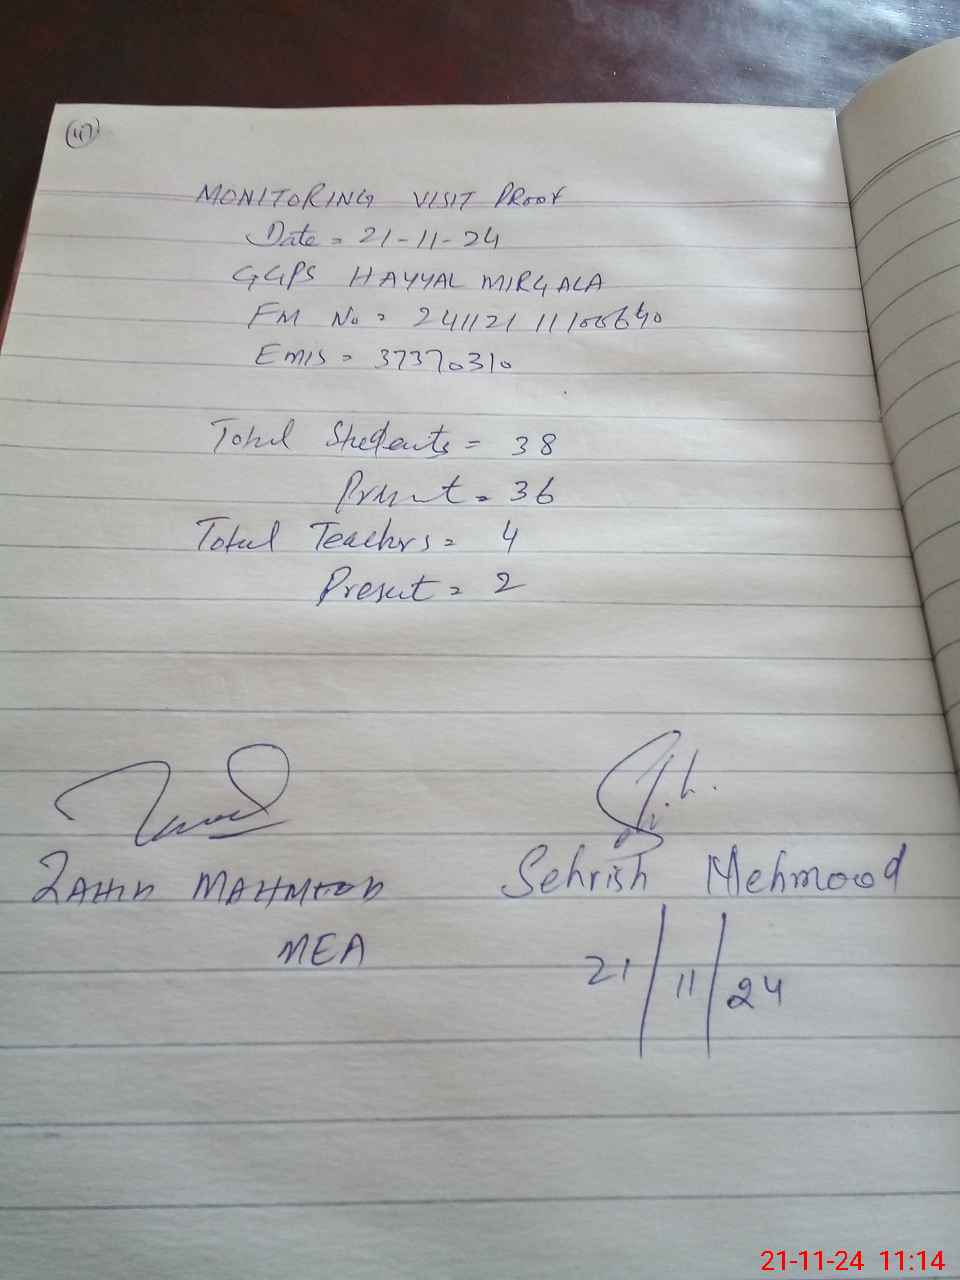 47
MONITORING VISIT PROOF
Date = 21-11-24
GGPS HAYYAL MIRGALA
FM No = 24112111100640
EMIS = 37370310
Total Students = 38
Present = 36
Total Teachers = 4
Present = 2
ZAHID MAHMOOD
Sehrish Mehmood
MEA
21/11/24
21-11-24 11:14